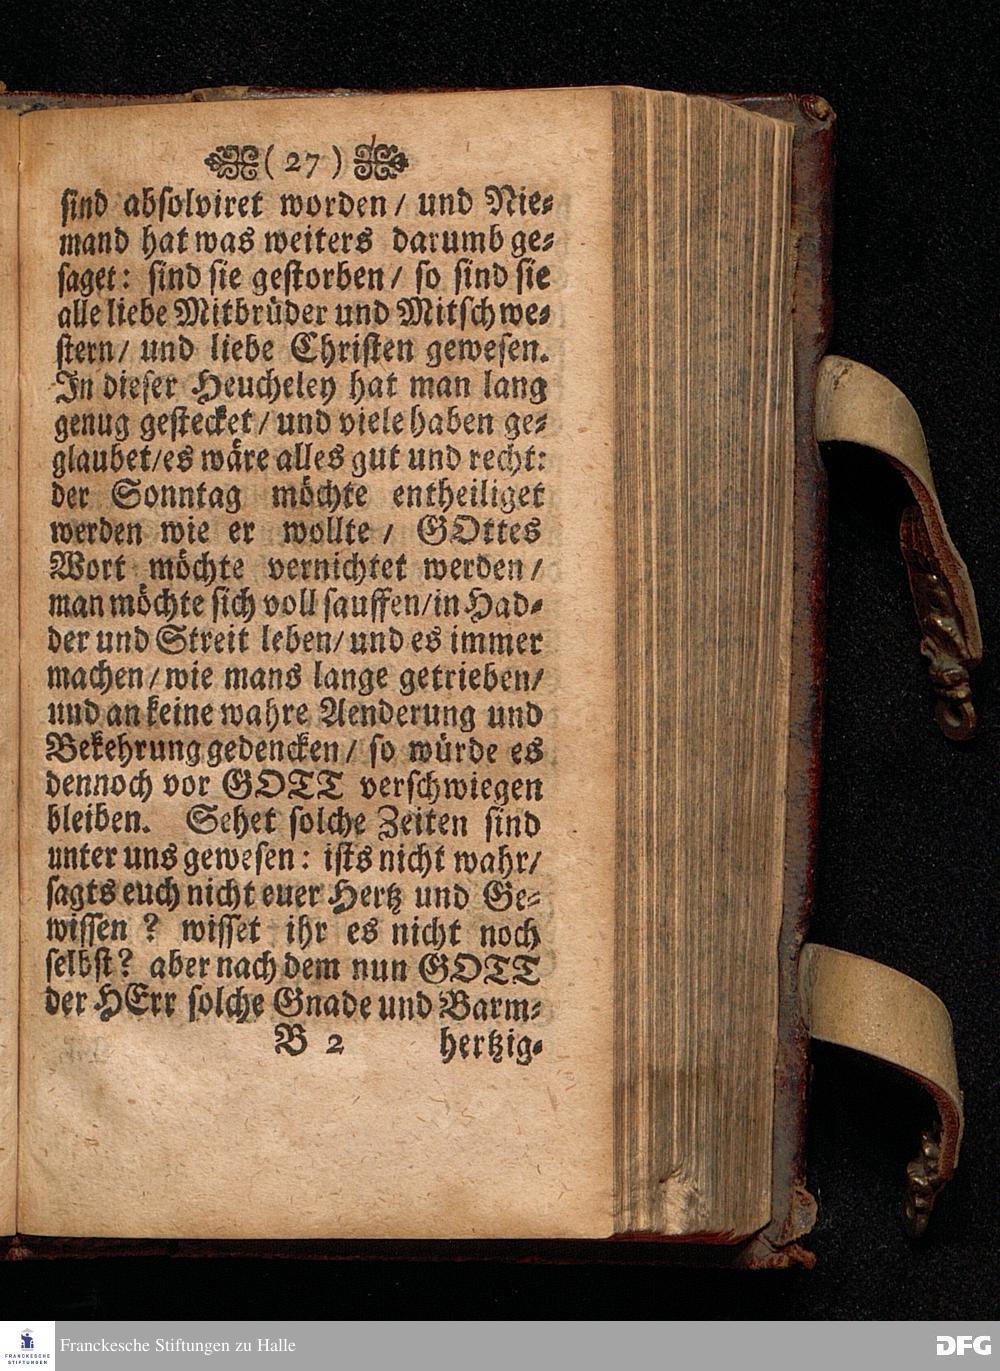 ( 27 )
sind absolviret worden / und Nie-
mand hat was weiters darumb ge-
saget: sind sie gestorben / so sind sie
alle liebe Mitbrüder und Mitschwe-
stern / und liebe Christen gewesen.
In dieser Heucheley hat man lang
genug gestecket / und viele haben ge-
glaubet / es wäre alles gut und recht:
der Sonntag möchte entheiliget
werden wie er wollte / GOttes
Wort möchte vernichtet werden /
man möchte sich voll sauffen / in Had-
der und Streit leben / und es immer
machen / wie mans lange getrieben /
und an keine wahre Aenderung und
Bekehrung gedencken / so würde es
dennoch vor GOTT verschwiegen
bleiben. Sehet solche Zeiten sind
unter uns gewesen: ists nicht wahr /
sagts euch nicht euer Hertz und Ge-
wissen ? wisset ihr es nicht noch
selbst? aber nach dem nun GOTT
der HErr solche Gnade und Barm-
B 2 hertzig-
FRANCKESCHE STIFTUNGEN
Franckesche Stiftungen zu Halle
DFG